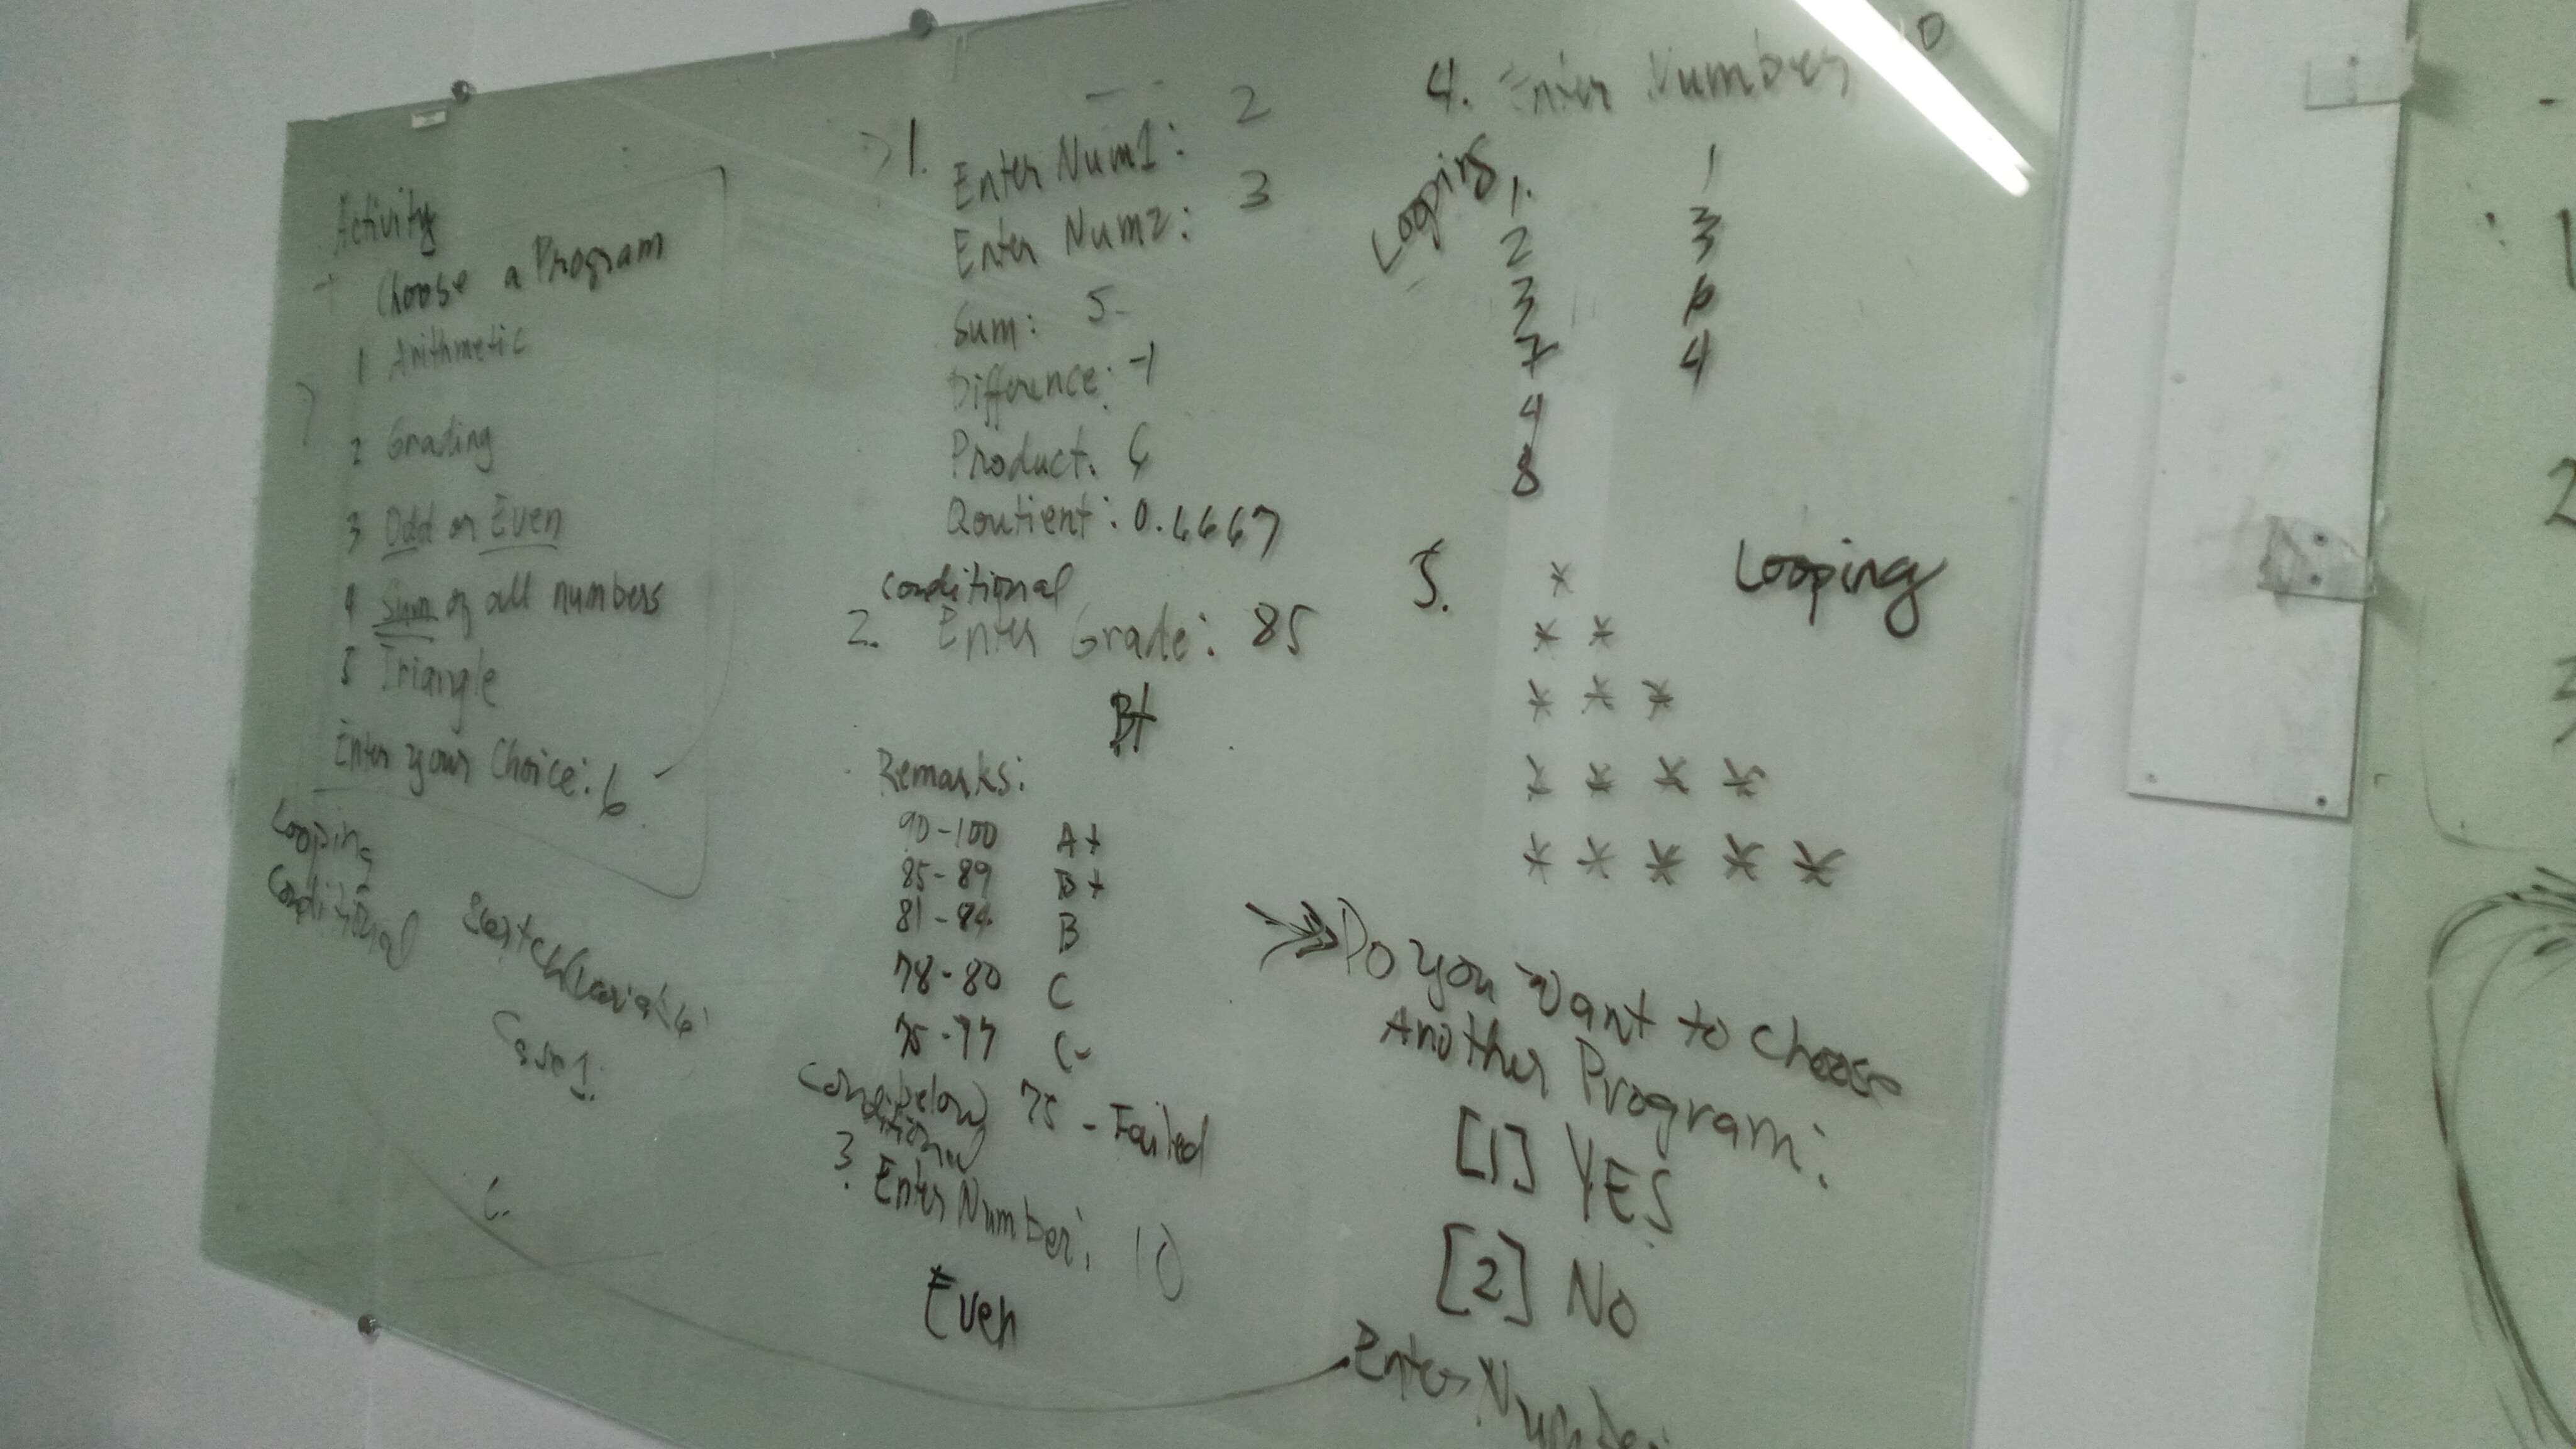 Activity
Choose a Program
1 Arithmetic
2 Grading
3 Odd or Even
4 Sum of all numbers
5 Triangle
Enter your Choice: 6
Looping
Conditional
Case 1:
C.
1.
Enter Num1: 2
Enter Num2: 3
Sum: 5
Difference: -1
Product: 6
Qoutient: 0.6667
Conditional
2. Enter Grade: 85
B+
Remarks:
90-100 A+
85-89 B+
81-84 B
78-80 C
75-77 C-
below 75 - Failed
Conditional
3. Enter Number: 10
Even
4. Enter Number 10
Looping
1. 1
2 3
3 6
7 4
4
8
5. Looping
*
* *
* * *
* * * *
* * * * *
Do you want to choose
Another Program:
[1] YES
[2] No
Enter Number
2